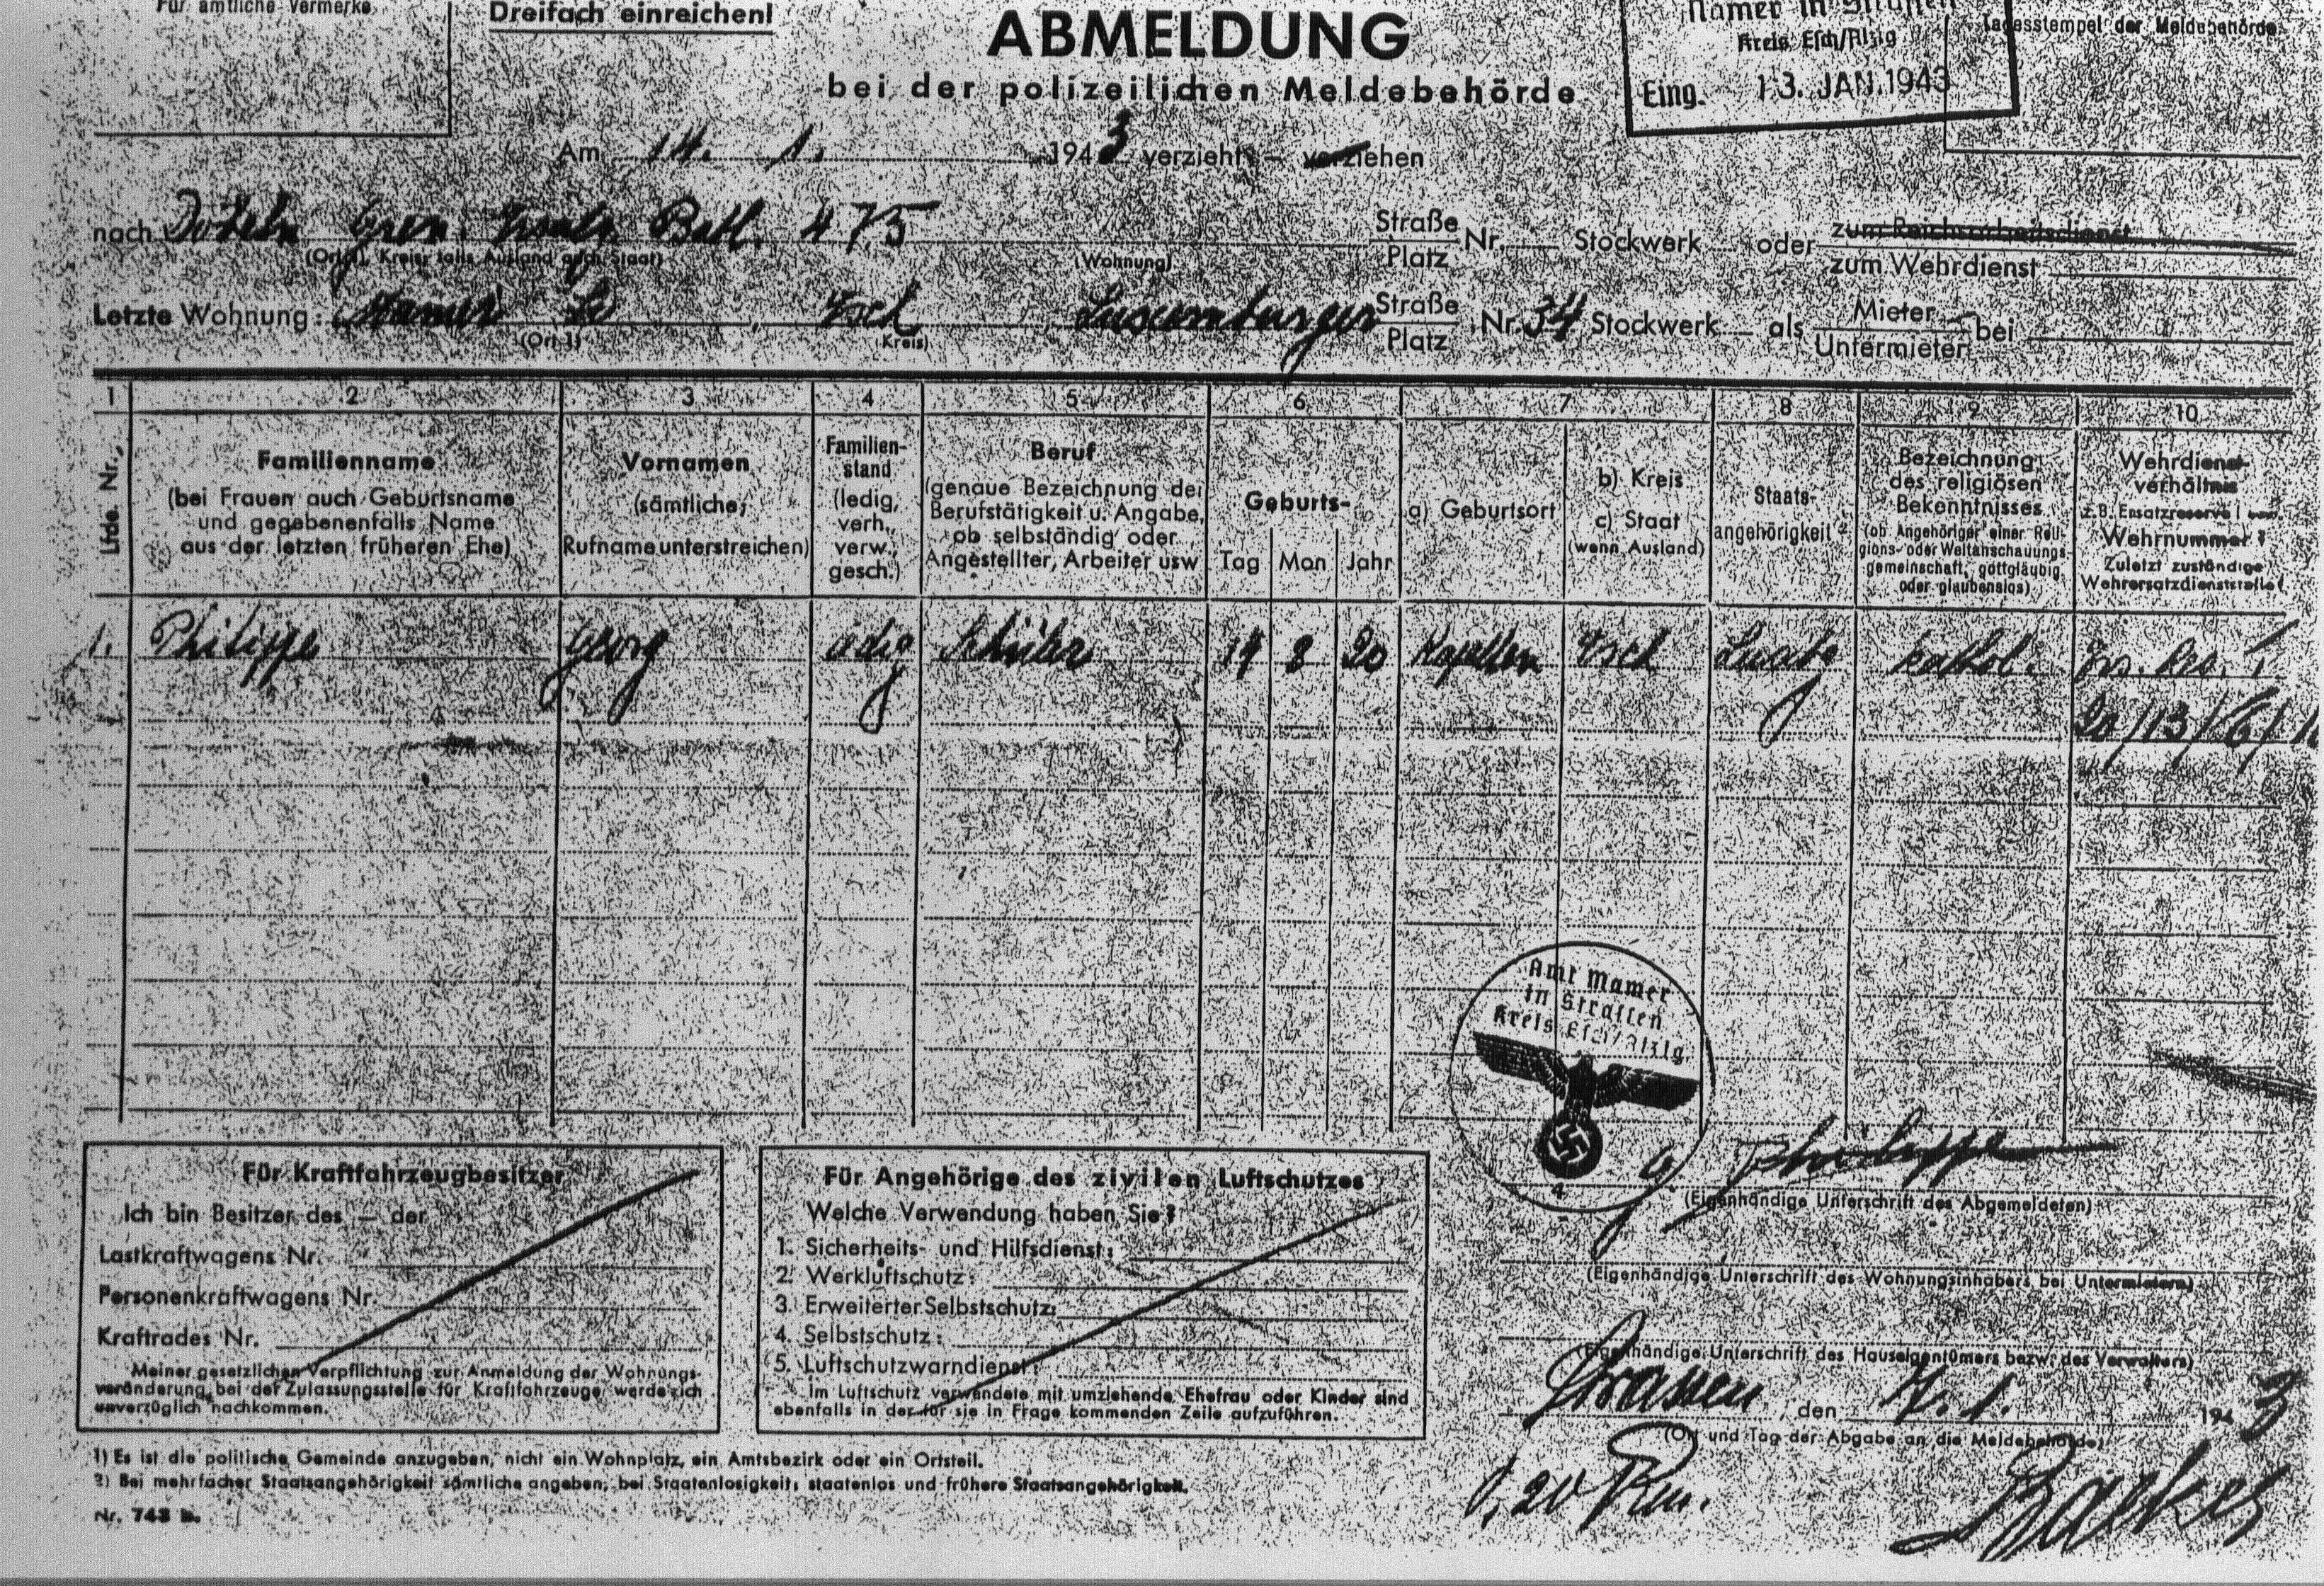 Für amtliche Vermerke
Dreifach einreichen!
ABMELDUNG
bei der polizeilichen Meldebehörde
Mamer in Straffen
Kreis Esch/Alzig
Eing. 13. JAN. 1943
Tagesstempel der Meldebehörde
Am 14. 1. 1943 verzieht — verziehen
nach Döbeln Gren. Ersatz Batl. 475 Straße Platz Nr. Stockwerk oder zum Reichsarbeitsdienst zum Wehrdienst
(Ort 1), Kreis, falls Ausland auch Staat) (Wohnung)
Letzte Wohnung: Mamer, Esch, Luxemburger Straße Platz Nr. 34 Stockwerk — als Mieter Untermieter bei
(Ort 1) (Kreis)
1 2 3 4 5 6 7 8 9 10
Lfde. Nr.
Familienname
(bei Frauen auch Geburtsname
und gegebenenfalls Name
aus der letzten früheren Ehe)
Vornamen
(sämtliche,
Rufname unterstreichen)
Familien-
stand
(ledig,
verh.,
verw.,
gesch.)
Beruf
(genaue Bezeichnung der
Berufstätigkeit u. Angabe,
ob selbständig oder
Angestellter, Arbeiter usw
Geburts-
Tag Mon Jahr
a) Geburtsort
b) Kreis
c) Staat
(wenn Ausland)
Staats-
angehörigkeit 2
Bezeichnung
des religiösen
Bekenntnisses
(ob Angehöriger einer Reli-
gions- oder Weltanschauungs-
gemeinschaft, gottgläubig
oder glaubenslos)
Wehrdienst-
verhältnis
z.B. Ersatzreserve I
Wehrnummer?
Zuletzt zuständige
Wehrersatzdienststelle?
1. Philippe Georg ledig Schüler 14 8 20 Kapellen Esch Luxbg kathol. Ers. Res. I
20/13/6/
Amt Mamer
in Straffen
Kreis Esch/Alzig
4
G. Philippe
(Eigenhändige Unterschrift des Abgemeldeten)
(Eigenhändige Unterschrift des Wohnungsinhabers bei Untermietern)
(Eigenhändige Unterschrift des Hauseigentümers bezw. des Verwalters)
Strassen, den 7. 1. 1943
(Ort und Tag der Abgabe an die Meldebehörde)
0,20 Rm.
Für Kraftfahrzeugbesitzer
Ich bin Besitzer des — der
Lastkraftwagens Nr.
Personenkraftwagens Nr.
Kraftrades Nr.
Meiner gesetzlichen Verpflichtung zur Anmeldung der Wohnungs-
veränderung bei der Zulassungsstelle für Kraftfahrzeuge werde ich
unverzüglich nachkommen.
Für Angehörige des zivilen Luftschutzes
Welche Verwendung haben Sie?
1. Sicherheits- und Hilfsdienst:
2. Werkluftschutz:
3. Erweiterter Selbstschutz:
4. Selbstschutz:
5. Luftschutzwarndienst:
Im Luftschutz verwendete mit umziehende Ehefrau oder Kinder sind
ebenfalls in der für sie in Frage kommenden Zeile aufzuführen.
1) Es ist die politische Gemeinde anzugeben, nicht ein Wohnplatz, ein Amtsbezirk oder ein Ortsteil.
2) Bei mehrfacher Staatsangehörigkeit sämtliche angeben, bei Staatenlosigkeit: staatenlos und frühere Staatsangehörigkeit.
Nr. 743 b.